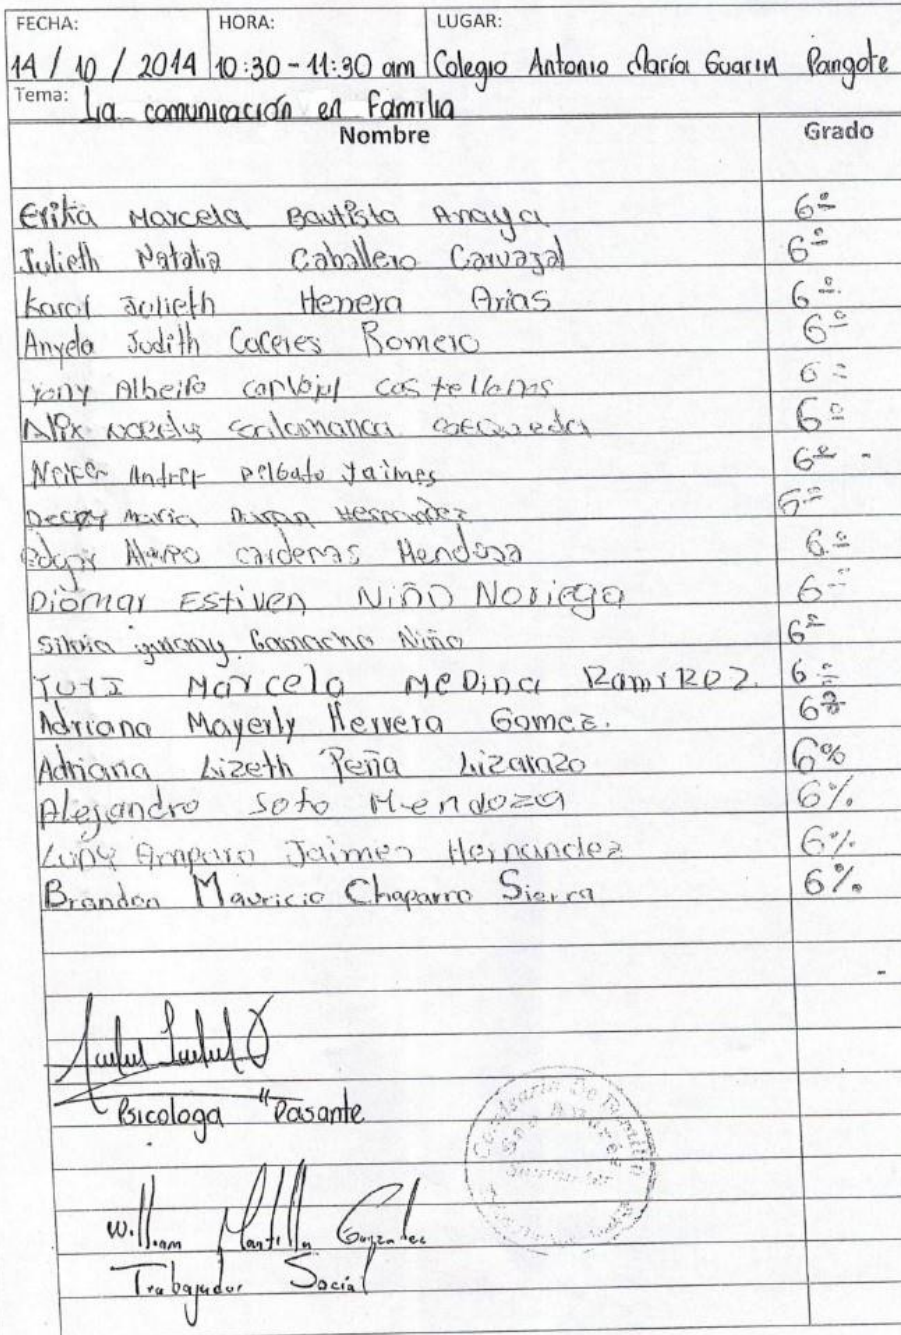 FECHA: HORA: LUGAR:
14 / 10 / 2014 10:30 - 11:30 am Colegio Antonio María Guarin Pangote
Tema: La comunicación en Familia
Nombre Grado
Erika Marcela Bautista Anaya 6°
Julieth Natalia Caballero Carvajal 6°
Karol Julieth Herrera Arias 6°
Anyela Judith Caceres Romero 6°
Yony Albeiro carvajal castellanos 6°
Alix salamanca 6°
Andrey Delgado Jaimes 6°
Maria Duran Hernandez 6°
Edgar cardenas Mendoza 6°
Diomar Estiven Niño Noriega 6°
Silvia Camacho Niño 6°
YURI Marcela MeDina RamiRez. 6°
Adriana Mayerly Herrera Gomez. 6°
Adriana Lizeth Peña Lizarazo 6%
Alejandro Soto Mendoza 6%
Amparo Jaimes Hernandez 6%
Brandon Mauricio Chaparro Sierra 6%
Psicologa "Pasante
Comisaria De Familia
Santander
William Mantilla Gonzalez
Trabajador Social